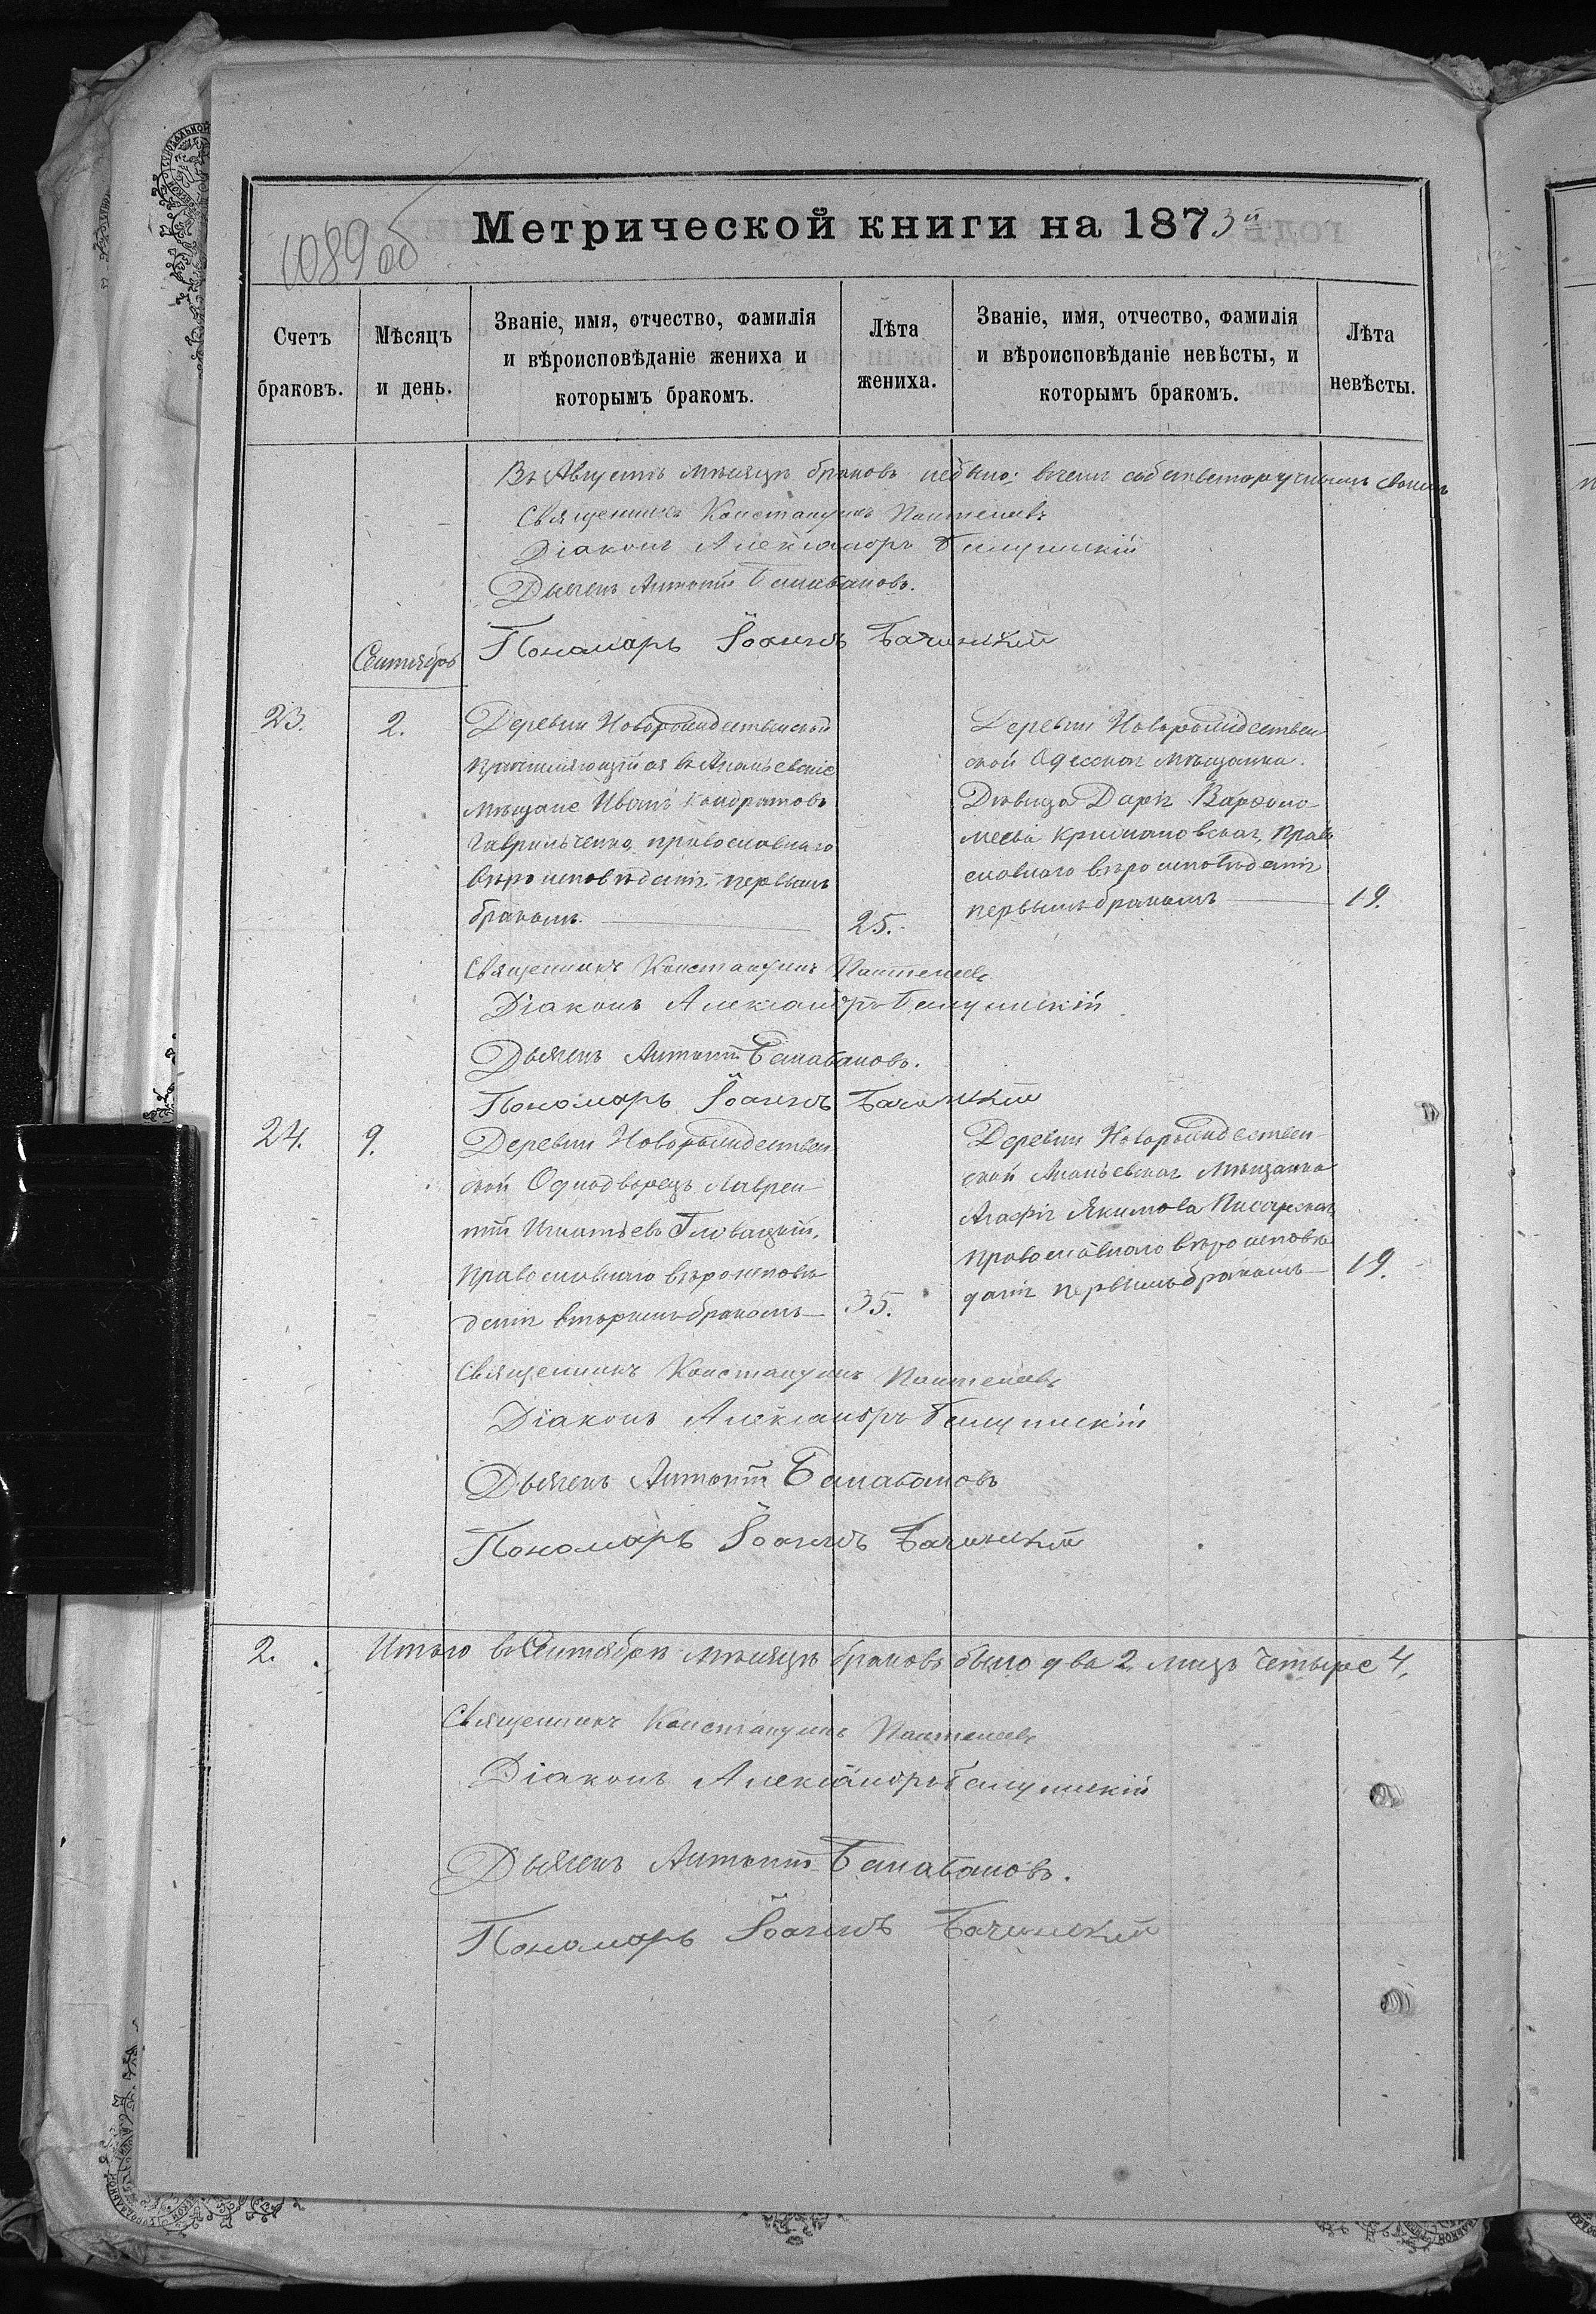 1089 об
Метрической книги на 1873й
Счетъ браковъ.
Мѣсяцъ и день.
Званіе, имя, отчество, фамилія и вѣроисповѣданіе жениха и которымъ бракомъ.
Лѣта жениха.
Званіе, имя, отчество, фамилія и вѣроисповѣданіе невѣсты, и которымъ бракомъ.
Лѣта невѣсты.
Въ Августѣ мѣсяцѣ браковъ небыло; въ чемъ
Священникъ Константинъ Пантелеевъ
Діаконъ Александръ
Дьячекъ Антоній Балабановъ.
Пономарь Іоаннъ Бачинскій
Сентябрь
23.
2.
Деревни Новорождественской
въ Ананьевскіе
мѣщане Иванъ Кондратовъ
Гаврильченко, православнаго
вѣроисповѣданія первымъ
бракомъ.
25.
Деревни Новорождествен
ской Одесская мѣщанка.
Дѣвица Дарія Варѳоло-
меева Крижановская, Право
славнаго вѣроисповѣданія
первымъ бракомъ
19.
Священникъ Константинъ Пантелеевъ
Діаконъ Александръ
Дьячекъ Антоній Балабановъ.
Пономарь Іоаннъ Бачинскій
24.
9.
Деревни Новорождествен
ской Однодворецъ Лаврен-
тій Игнатьевъ Гловацкій,
православнаго вѣроисповѣ
данія вторымъ бракомъ
35.
Деревни Новорождествен-
ской Ананьевская Мѣщанка
Агафія Якимова Писарская
православнаго вѣроисповѣ
данія первымъ бракомъ
19.
Священникъ Константинъ Пантелеевъ
Діаконъ Александръ
Дьячекъ Антоній Балабановъ
Пономарь Іоаннъ Бачинскій
2.
Итого въ Сентябрѣ мѣсяцѣ браковъ было два 2. лицъ четыре 4,
Священникъ Константинъ Пантелеевъ
Діаконъ Александръ
Дьячекъ Антоній Балабановъ.
Пономарь Іоаннъ Бачинскій